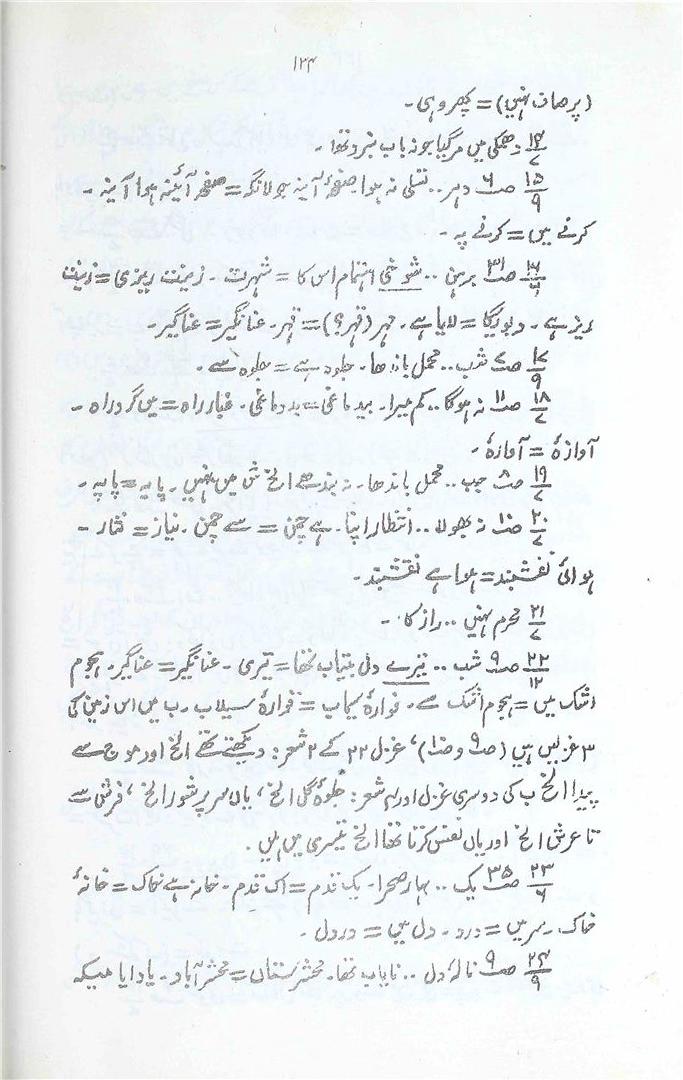 ۱۲۴
(پر صاف نہیں) = پھر وہی ۔
۱۴/۷ دھمکی میں مر گیا جو نہ باب نبرد تھا ۔
۱۵/۹ صـ ۶ دہر .. تسلی نہ ہوا۔ صفحۂ آینہ جولانگہ = صفحہ آئینہ ہوا آینہ ۔
کرنے میں = کرنے پہ ۔
صـ ۳۱ برہن .. شوخیِ اہتمام اس کا = شہرت ۔ زینت ریزی = زینت
ریز ہے ۔ دیویگا = لایا ہے ۔ مہر (قہر؟) = قہر ۔ عنانگیر = عناگیر ۔
۱۷/۹ صـ ۷ شب .. محمل باندھا ۔ جلوہ ہے = جلوہ سے ۔
۱۸/۷ صـ ۱۱ نہ ہوگا .. کم میرا ۔ بیدماغی = بددماغی ۔ غبار راہ = میں گرد راہ ۔
آوازہ = آوازۂ ۔
۱۹/۷ صـ ۸ جب .. محمل باندھا ۔ نہ بندھے الخ ش میں نہیں ۔ پایہ = پاپہ ۔
۲۰/۷ صـ ۱۰ نہ بھولا .. انتظار اپنا ۔ ہے چمن = سے چمن ۔ نیاز = نثار ۔
ہوائی نقشبند = ہوا ہے نقشبند ۔
۲۱/۷ محرم نہیں .. راز کا ۔
۲۲/۱۲ صـ ۹ شب .. تیرے دل بیتاب تھا = تیری ۔ عنانگیر = عناگیر ۔ ہجوم
اشک میں = ہجوم اشک سے ۔ فوارۂ سیماب = فوارۂ سیلاب ۔ ب میں اس زمین کی
۳ غزلیں ہیں (صـ ۹ و صـ ۱۰)، غزل ۲۲ کے ۲ شعر : دیکھتے تھے الخ اور موج سے
پیدا الخ ب کی دوسری غزل اور ۳ شعر : جلوۂ گل الخ ، یاں سر پرشور الخ ، فرش سے
تا عرش الخ اور یاں نفس کرتا تھا الخ تیسری میں ہیں ۔
۲۳/۶ صـ ۳۵ یک .. بہار صحرا ۔ یک قدم = اک قدم ۔ خانہ ہے خاک = خانۂ
خاک ۔ سر میں = درد ۔ دل میں = در دل ۔
۲۴/۹ صـ ۹ نالۂ دل .. نایاب تھا ۔ محشرستان = محشر آباد ۔ یاد ایا میکہ